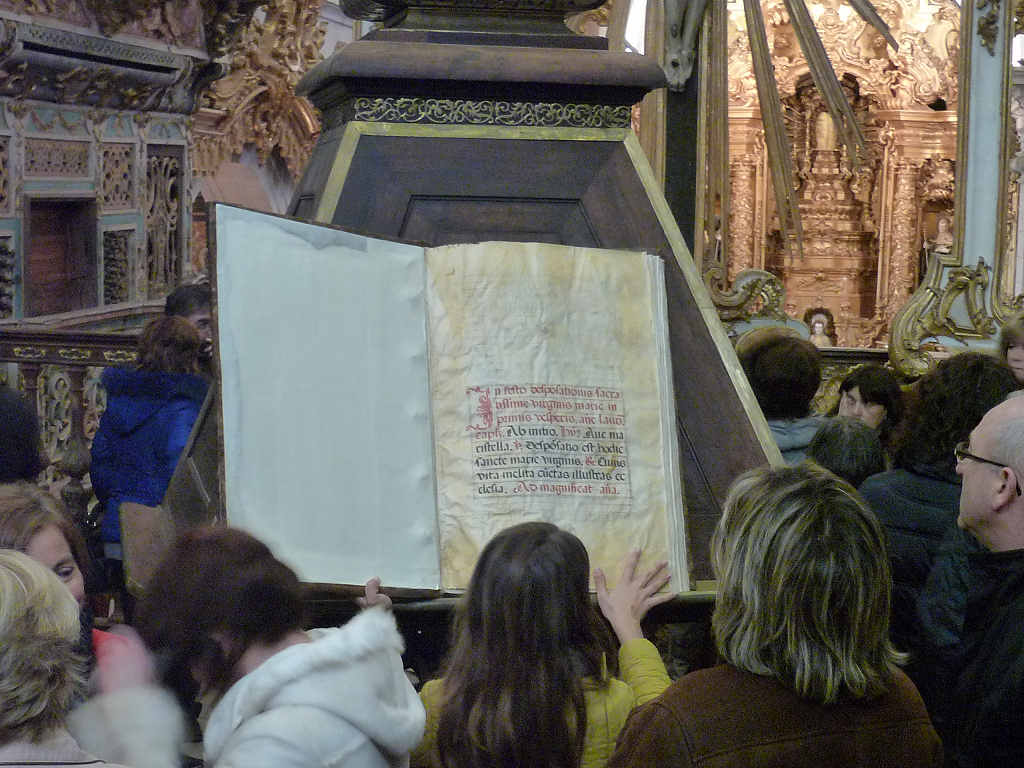 In festo desposationis sacra
tissime virginis marie in
primis vesperis, ane laud.
capl. Ab initio. Hỹ. Aue ma
ristella. ℣. Desposatio est hodie
sancte marie virginis. ℟. Cuius
vita inclita cūctas illustras ec
clesia. Ad magnificat aña.